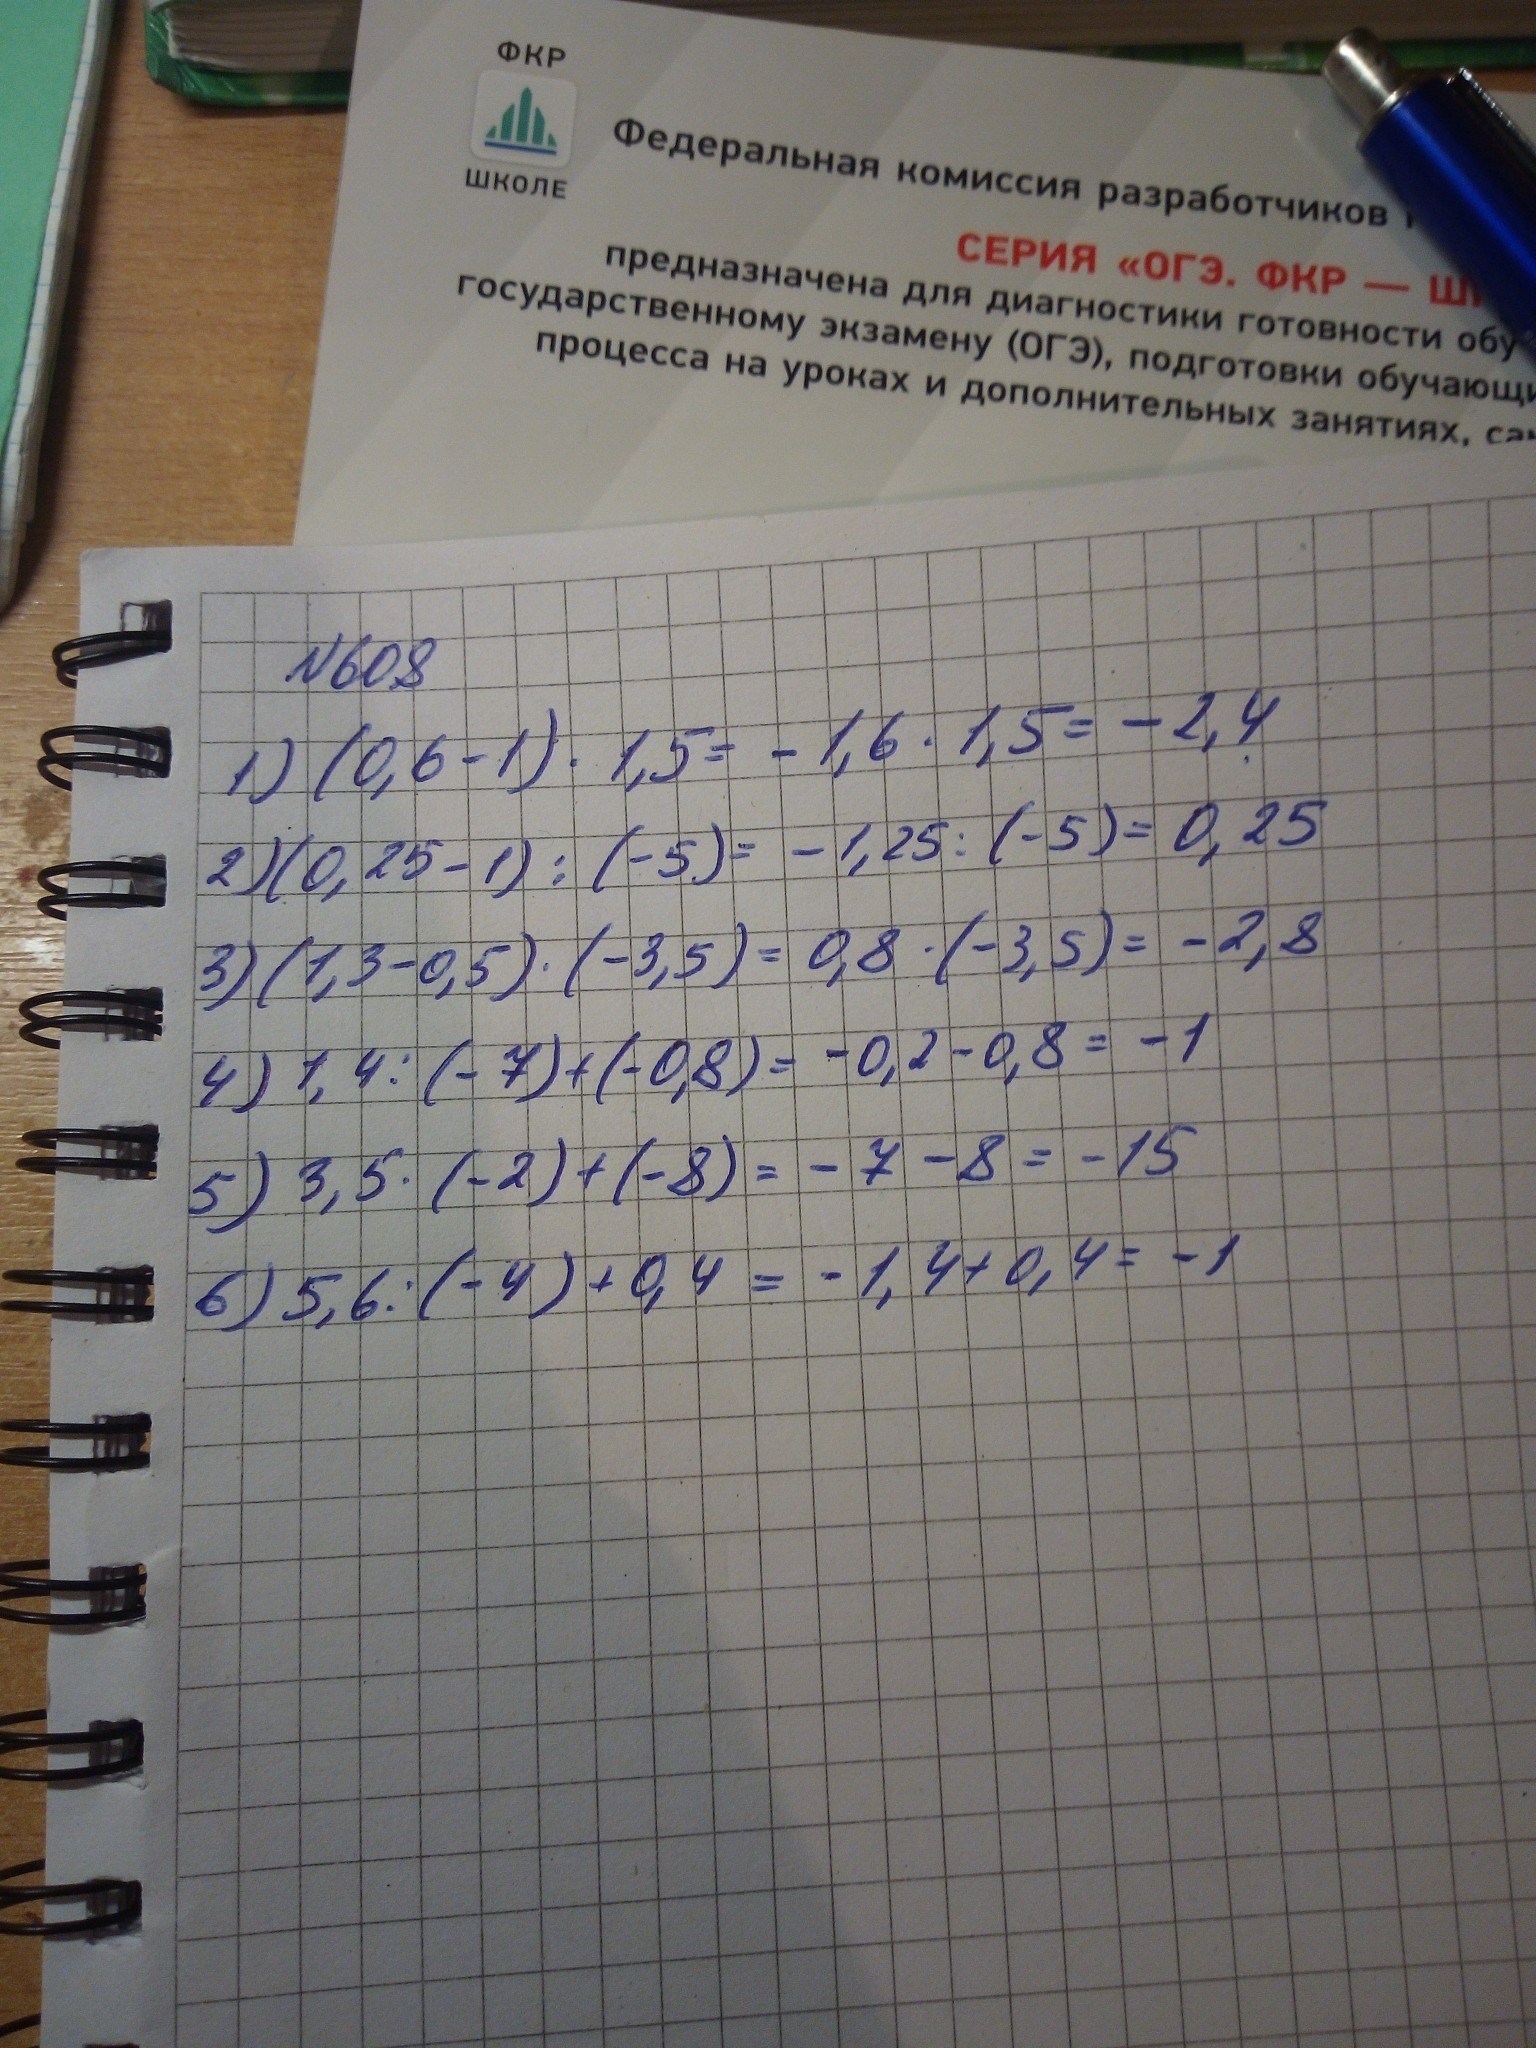 ФКР
ШКОЛЕ
Федеральная комиссия разработчиков
СЕРИЯ «ОГЭ. ФКР —
предназначена для диагностики готовности
государственному экзамену (ОГЭ), подготовки
процесса на уроках и дополнительных занятиях,
N608
1) (0,6-1)·1,5= -1,6·1,5= -2,4
2)(0,25-1):(-5)= -1,25:(-5)= 0,25
3)(1,3-0,5)·(-3,5)= 0,8·(-3,5)= -2,8
4) 1,4:(-7)+(-0,8)= -0,2-0,8= -1
5) 3,5·(-2)+(-8)= -7-8= -15
6) 5,6:(-4)+0,4 = -1,4+0,4= -1